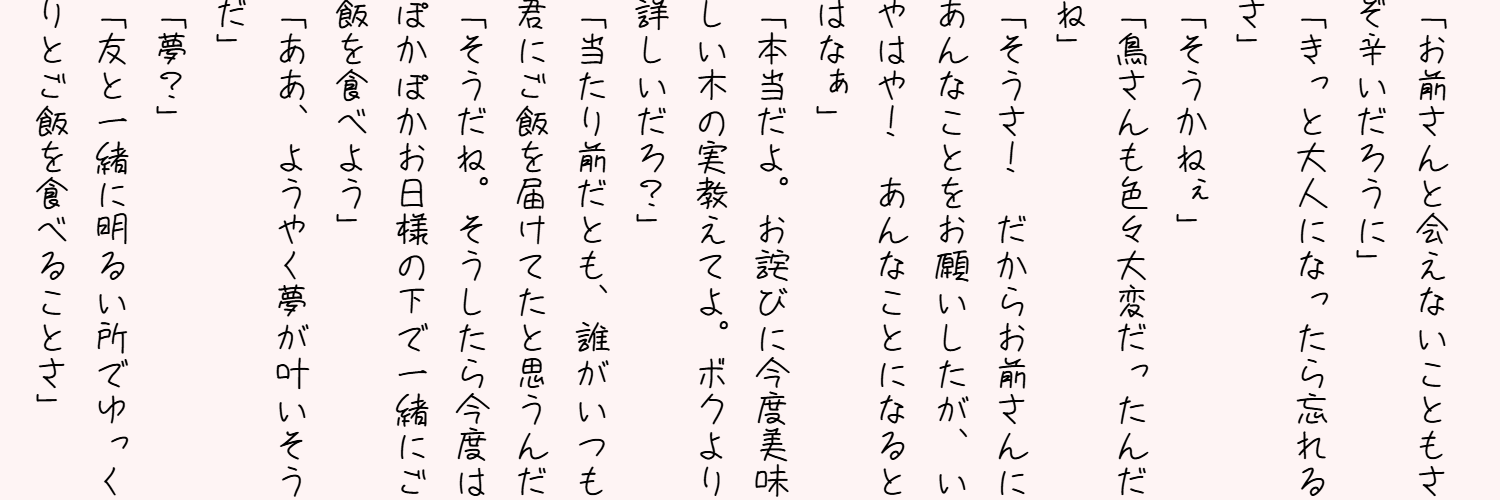 「お前さんと会えないこともさ
ぞ辛いだろうに」
「きっと大人になったら忘れる
さ」
「そうかねぇ」
「鳥さんも色々大変だったんだ
ね」
「そうさ！　だからお前さんに
あんなことをお願いしたが、い
やはや！　あんなことになると
はなぁ」
「本当だよ。お詫びに今度美味
しい木の実教えてよ。ボクより
詳しいだろ？」
「当たり前だとも、誰がいつも
君にご飯を届けてたと思うんだ
「そうだね。そうしたら今度は
ぽかぽかお日様の下で一緒にご
飯を食べよう」
「ああ、ようやく夢が叶いそう
だ」
「夢？」
「友と一緒に明るい所でゆっく
りとご飯を食べることさ」